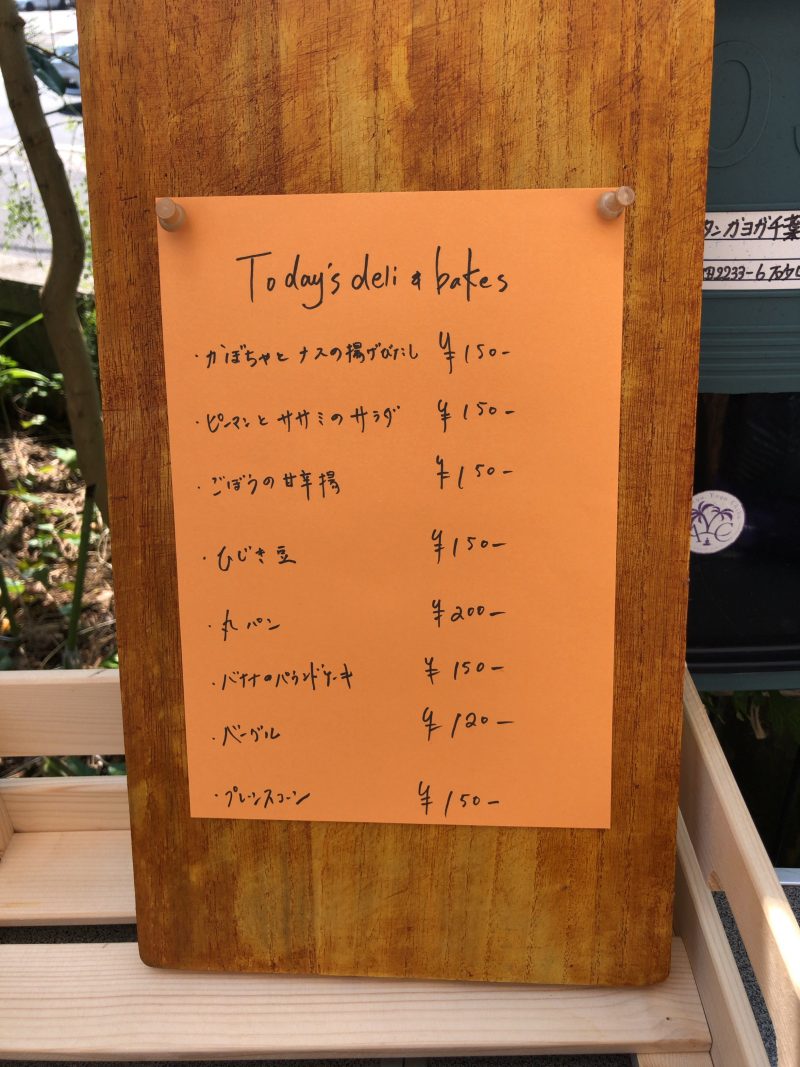 Today's deli & bakes
・かぼちゃとナスの揚げびたし ¥150-
・ピーマンとササミのサラダ ¥150-
・ごぼうの甘辛揚 ¥150-
・ひじき豆 ¥150-
・丸パン ¥200-
・バナナのパウンドケーキ ¥150-
・ベーグル ¥120-
・プレーンスコーン ¥150-
タンガヨガ千葉
2233-6